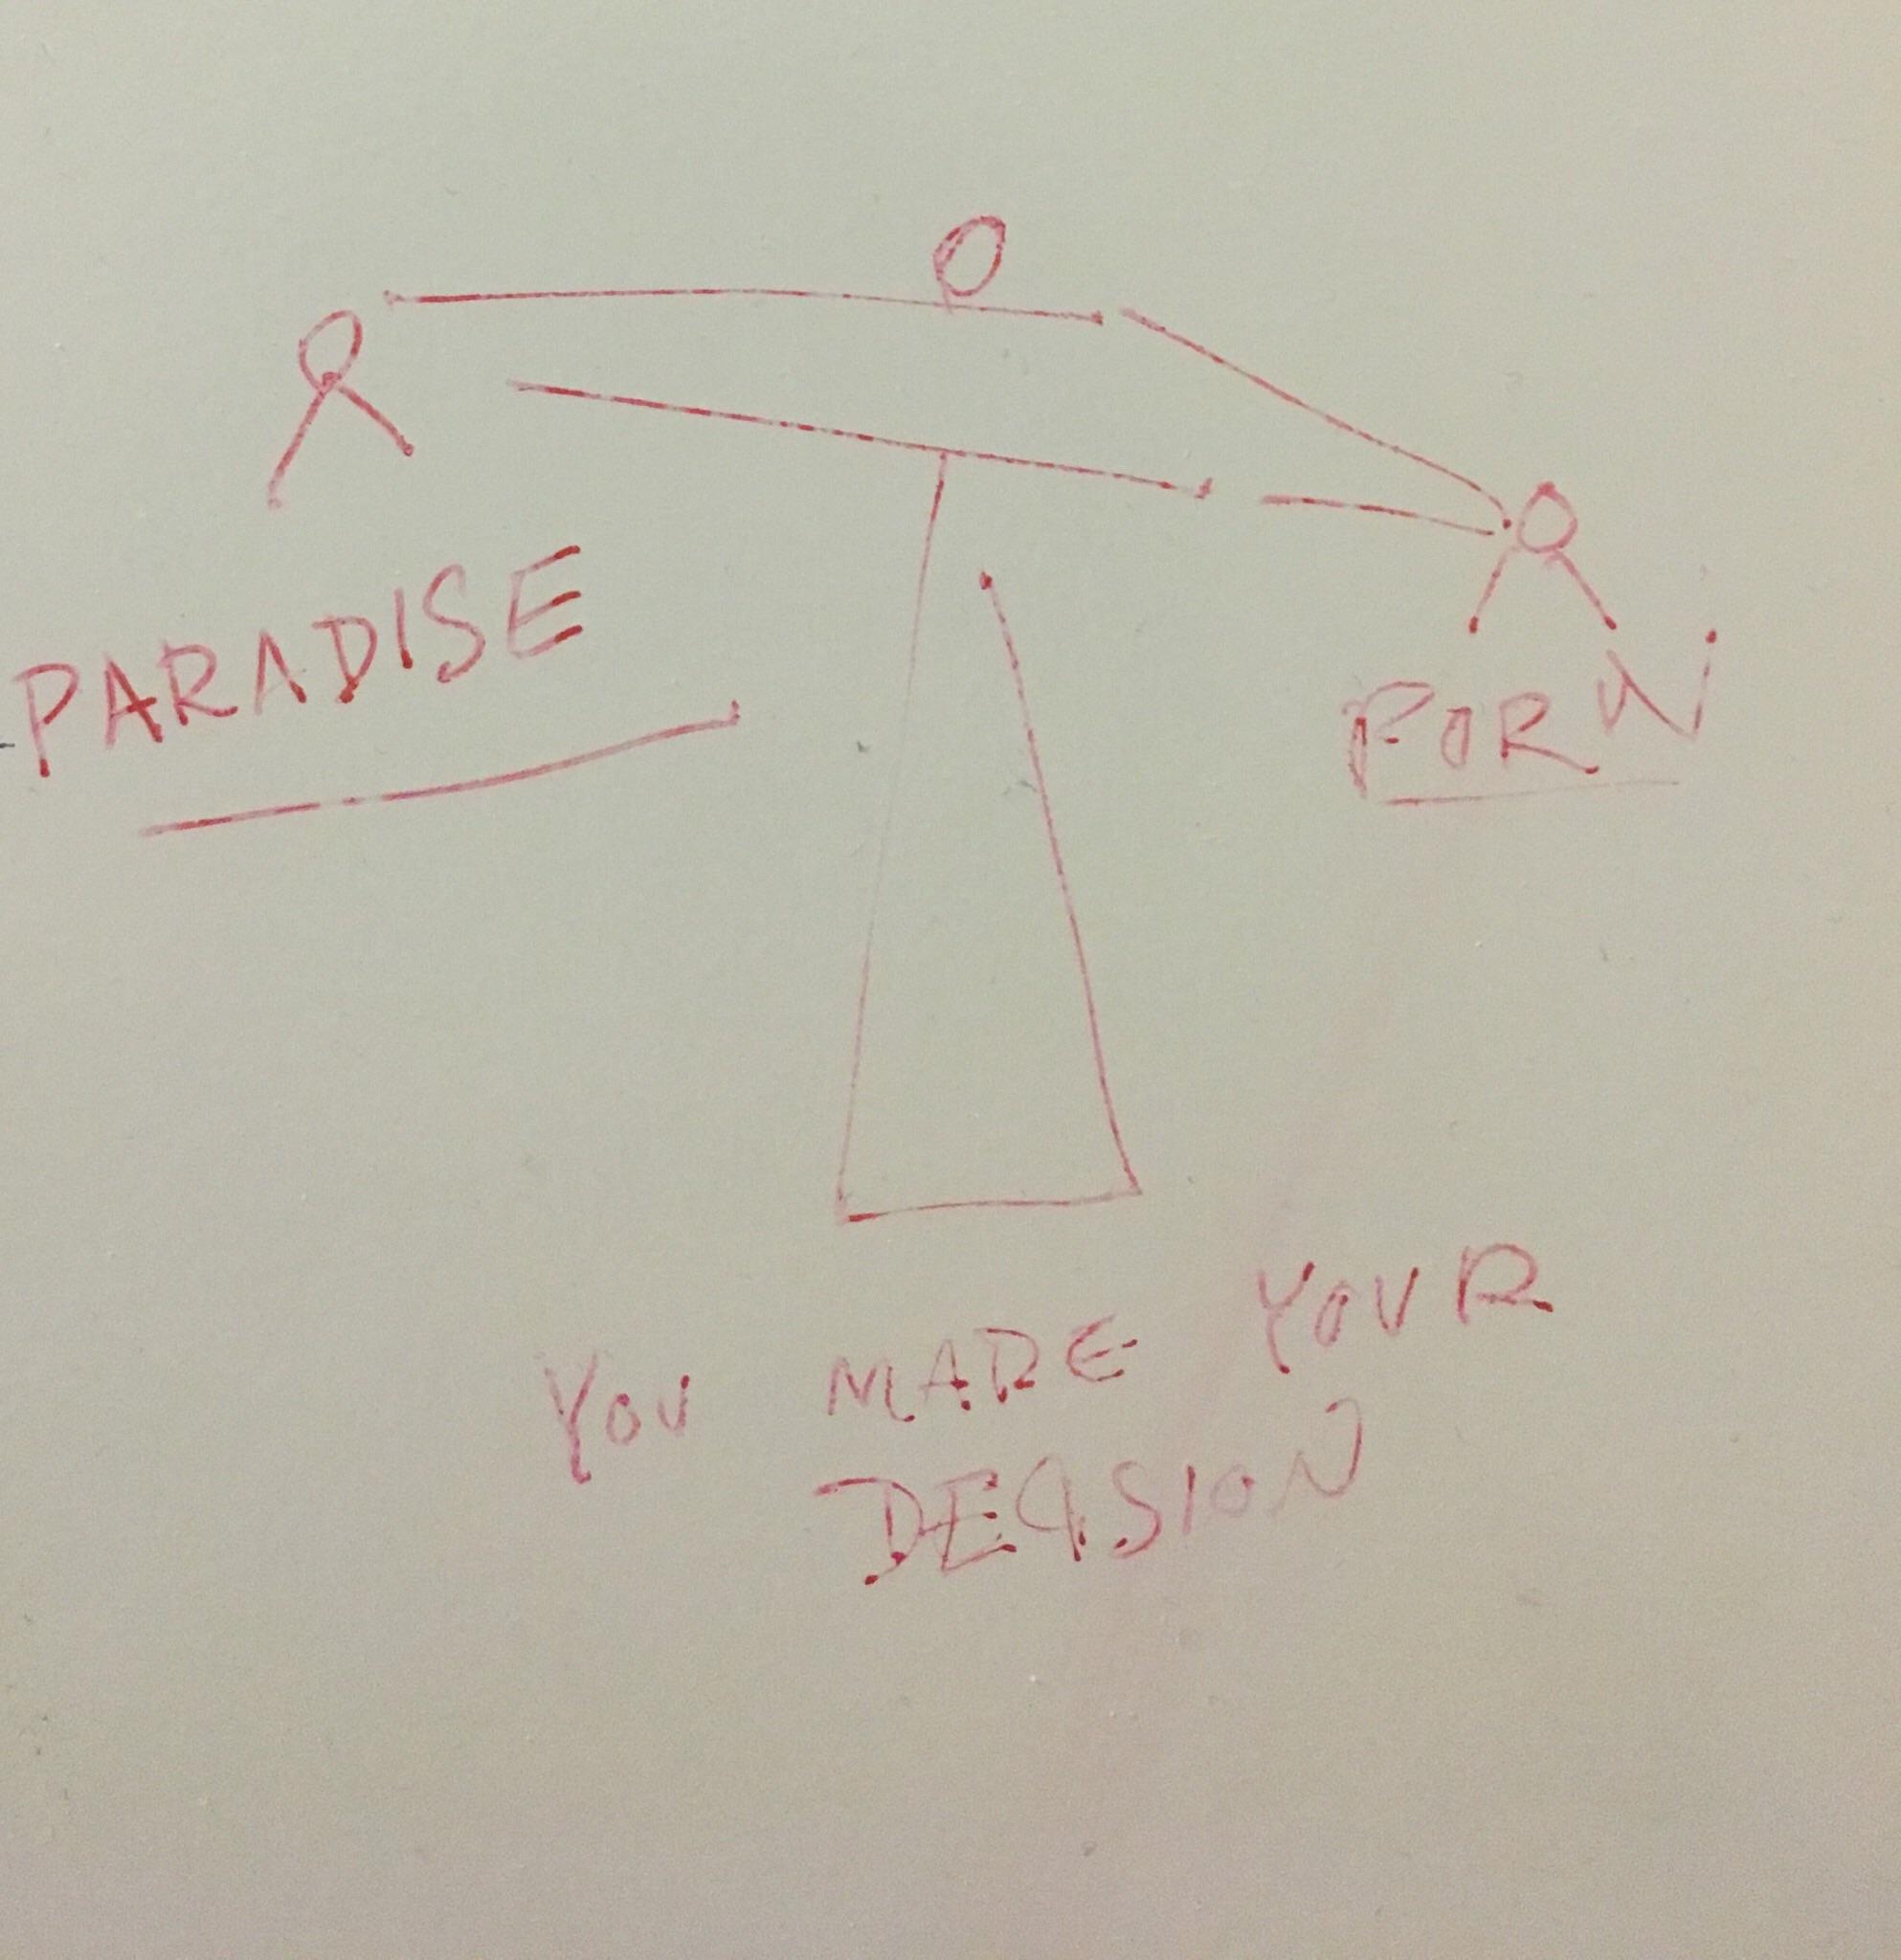 PARADISE
PORN
YOU MADE YOUR
DECISION